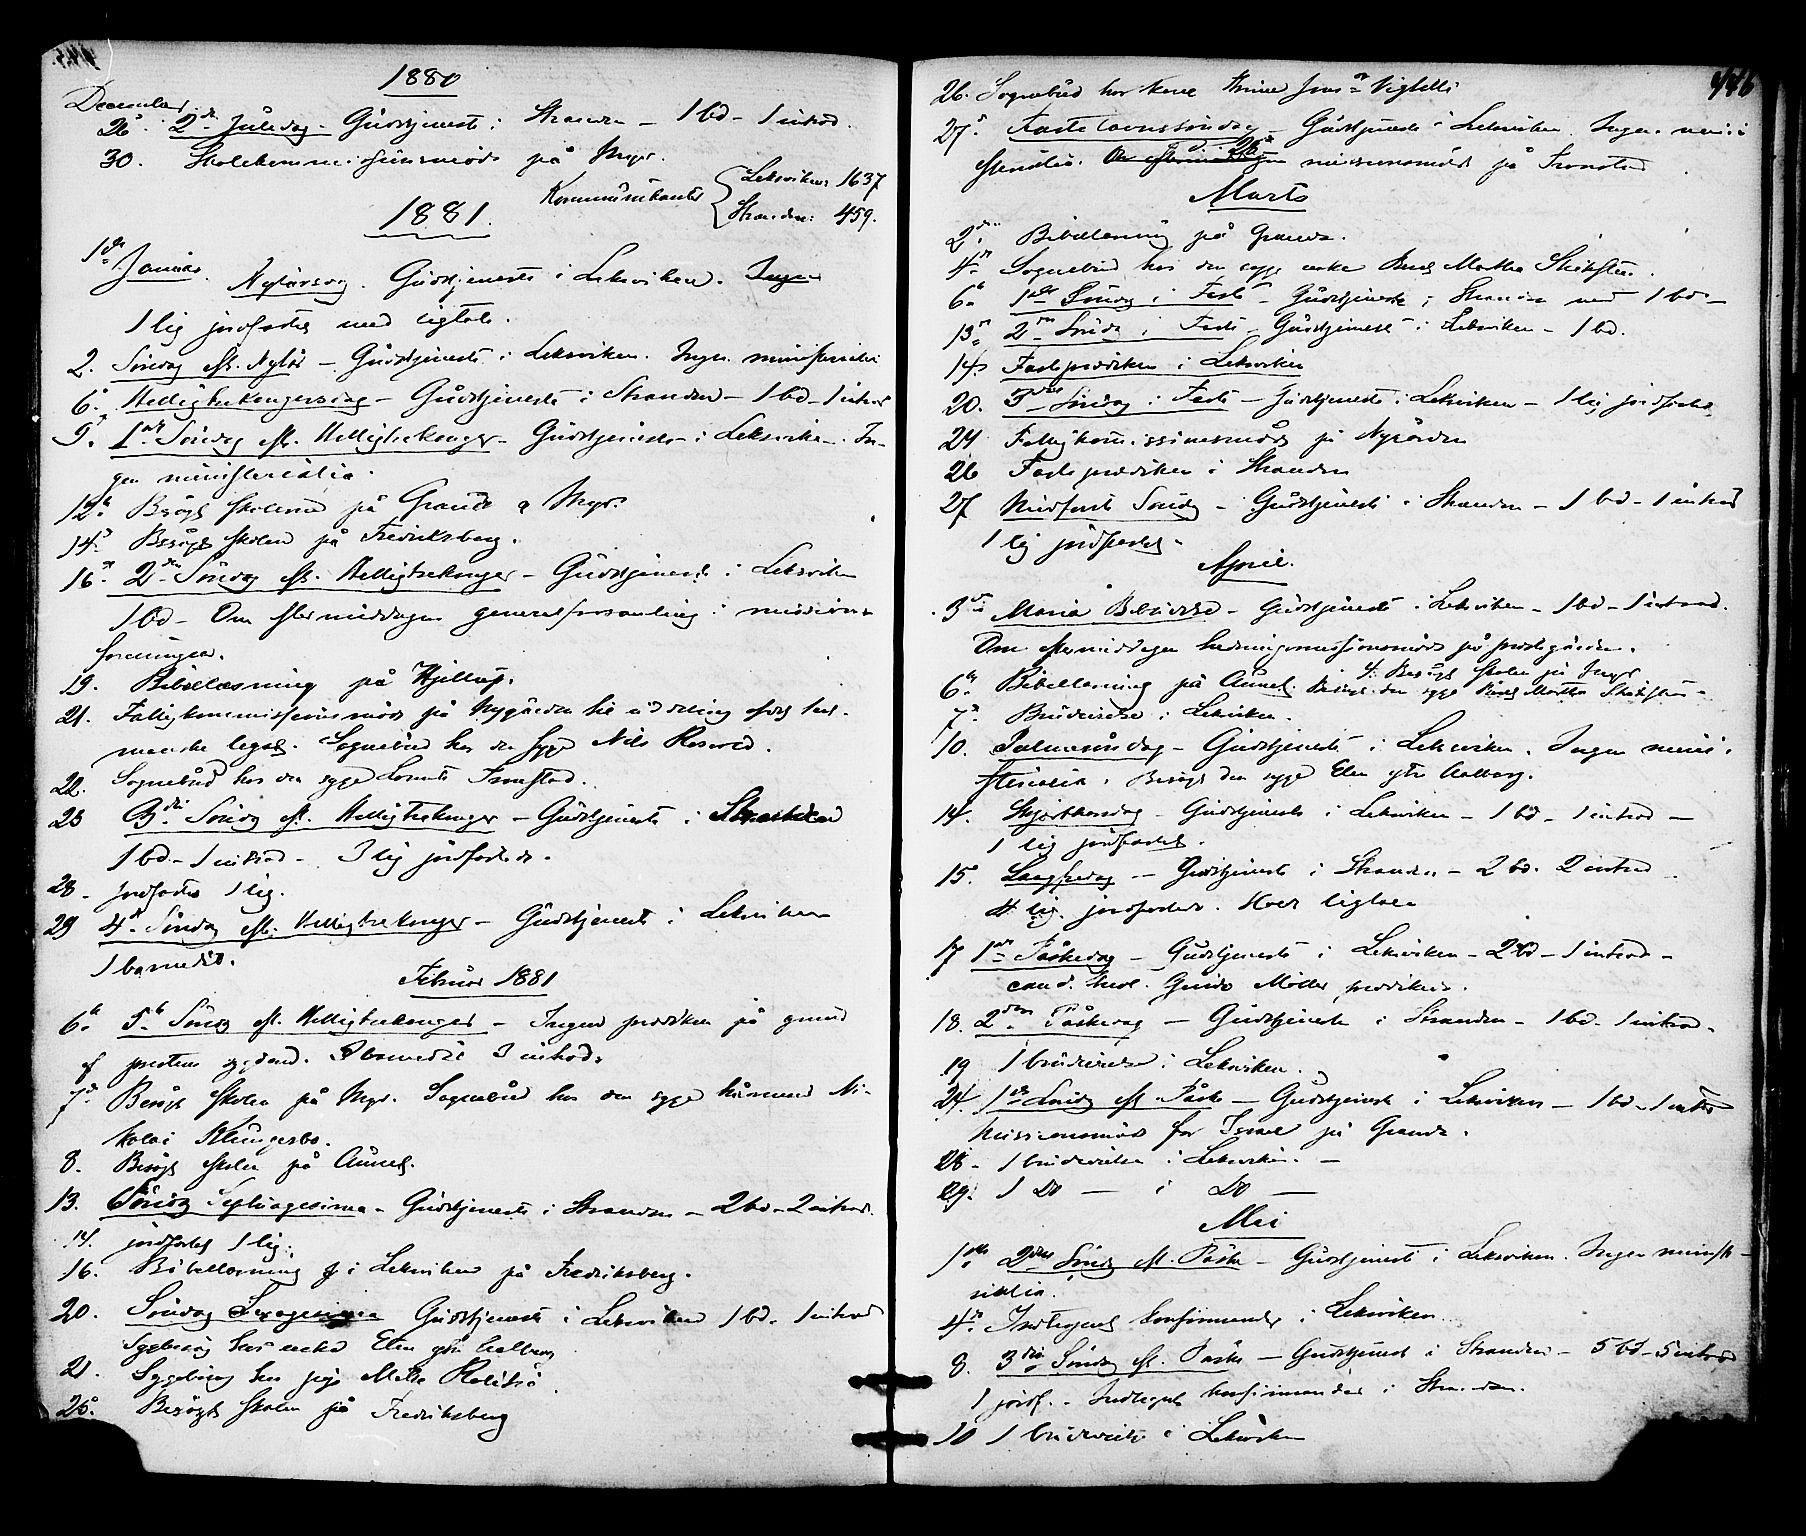 1880
December
26. 2den Juledag. Gudstjeneste i Stranden – 1 bd – 1 introd.
30. Skolekommissionsmøde på Myr.
Kommunikanter { Leksviken 1637
Stranden: 459.
1881.
1ste Januar. Nytårsdag. Gudstjeneste i Leksviken. Ingen
1 lig jordfæstet med ligtale.
2. Søndag eft. Nytår – Gudstjeneste i Leksviken. Ingen ministerialia
6. Helligtrekongersdag – Gudstjeneste i Stranden – 1 bd – 1 introd
9. 1ste Søndag eft. Helligtrekonger – Gudstjeneste i Leksviken. In-
gen ministerialia.
12. Besøgt skolerne på Grande og Myr.
14. Besøgt skolen på Fredriksberg.
16. 2den Søndag eft. Helligtrekonger – Gudstjeneste i Leksviken
1 bd – Om eftermiddagen generalforsamling i missions-
foreningen.
19. Bibellæsning på Hjellup.
21. Fattigkommissionsmøde på Nygården til uddeling af det
legat. Sognebud hos den syge Nils
22. Sognebud hos den syge Tronstad.
23 3die Søndag eft. Helligtrekonger – Gudstjeneste i Stranden
1 bd – 1 introd – 3 lig jordfæstede.
28 – Jordfæstet 1 lig.
29 4. Søndag eft. Helligtrekonger – Gudstjeneste i Leksviken
1 barnedåb.
Februar 1881
6. 5te Søndag eft. Helligtrekonger – Ingen prædiken på grund
af prestens sygdom. barnedåb 3 introd.
7. Besøgt skolen på Myr. Sognebud hos den syge husmand Ni-
kolai Klungerbo.
8. Besøgt skolen på Aunet.
13. Søndag Septuagesima – Gudstjeneste i Stranden – 2 bd – 2 introd.
14. jordfæstet 1 lig.
16. Bibellæsning i Leksviken på Fredriksberg.
20. Søndag Sexagesima Gudstjeneste i Leksviken 1 bd – 1 introd
Sygebesøg hos enke Elen ytre Aalberg
21. Sygebesøg hos pige Mette
25. Besøgt skolen på Fredriksberg
446
26. Sognebud hos Jens Vigtelli
27. Fastelavnssøndag – Gudstjeneste i Leksviken. Ingen mini-
sterialia. Om eftermiddagen missionsmøde på Tronstad
Marts
2. Bibellæsning på Grande.
4. Sognebud hos den syge enke Martha
6. 1ste Søndag i Faste – Gudstjeneste i Stranden med 1 bd –
13. 2den Søndag i Faste – Gudstjeneste i Leksviken – 1 bd.
14. Fasteprædiken i Leksviken
20. 3die Søndag i Faste – Gudstjeneste i Leksviken – 1 lig jordfæstet
24 Fattigkommissionsmøde på Nygården
26 Fasteprædiken i Stranden
27 Midfaste Søndag – Gudstjeneste i Stranden – 1 bd – 1 introd
1 lig jordfæstet.
April.
3. Maria Bebudelse – Gudstjeneste i Leksviken – 1 bd – 1 introd.
Om eftermiddagen hedningemissionsmøde på prestegården.
4. Besøgt skolen på Myr
6. Bibellæsning på Aunet. Besøgt den syge Martha
7. Brudevielse i Leksviken.
10. Palmesøndag – Gudstjeneste i Leksviken. Ingen mini-
sterialia. Besøgt den syge Elen ytre Aalberg.
14. Skjærthorsdag – Gudstjeneste i Leksviken – 1 bd – 1 introd –
1 lig jordfæstet.
15. Langfredag – Gudstjeneste i Stranden – 2 bd. 2 introd
4 lig jordfæstede. Holdt ligtale
17 1ste Påskedag – Gudstjeneste i Leksviken – 2 bd – 1 introd –
cand. theol. Guido Møller prædikede.
18. 2den Påskedag – Gudstjeneste i Stranden – 1 bd – 1 introd –
19 1 brudevielse i Leksviken.
24. 1ste Søndag eft. Påske – Gudstjeneste i Leksviken – 1 bd – 1 introd
Missionsmøde for Israel på Grande.
28 – 1 brudevielse i Leksviken. –
29. 1 Do — i Do —
Mai
1ste 2den Søndag eft. Påske – Gudstjeneste i Leksviken. Ingen ministe-
rialia.
4. Indtegnet konfirmander i Leksviken.
8. 3die Søndag eft. Påske – Gudstjeneste i Stranden – 5 bd – 5 introd
1 jordf. – Indtegnet konfirmander i Stranden.
10 1 brudevielse i Leksviken